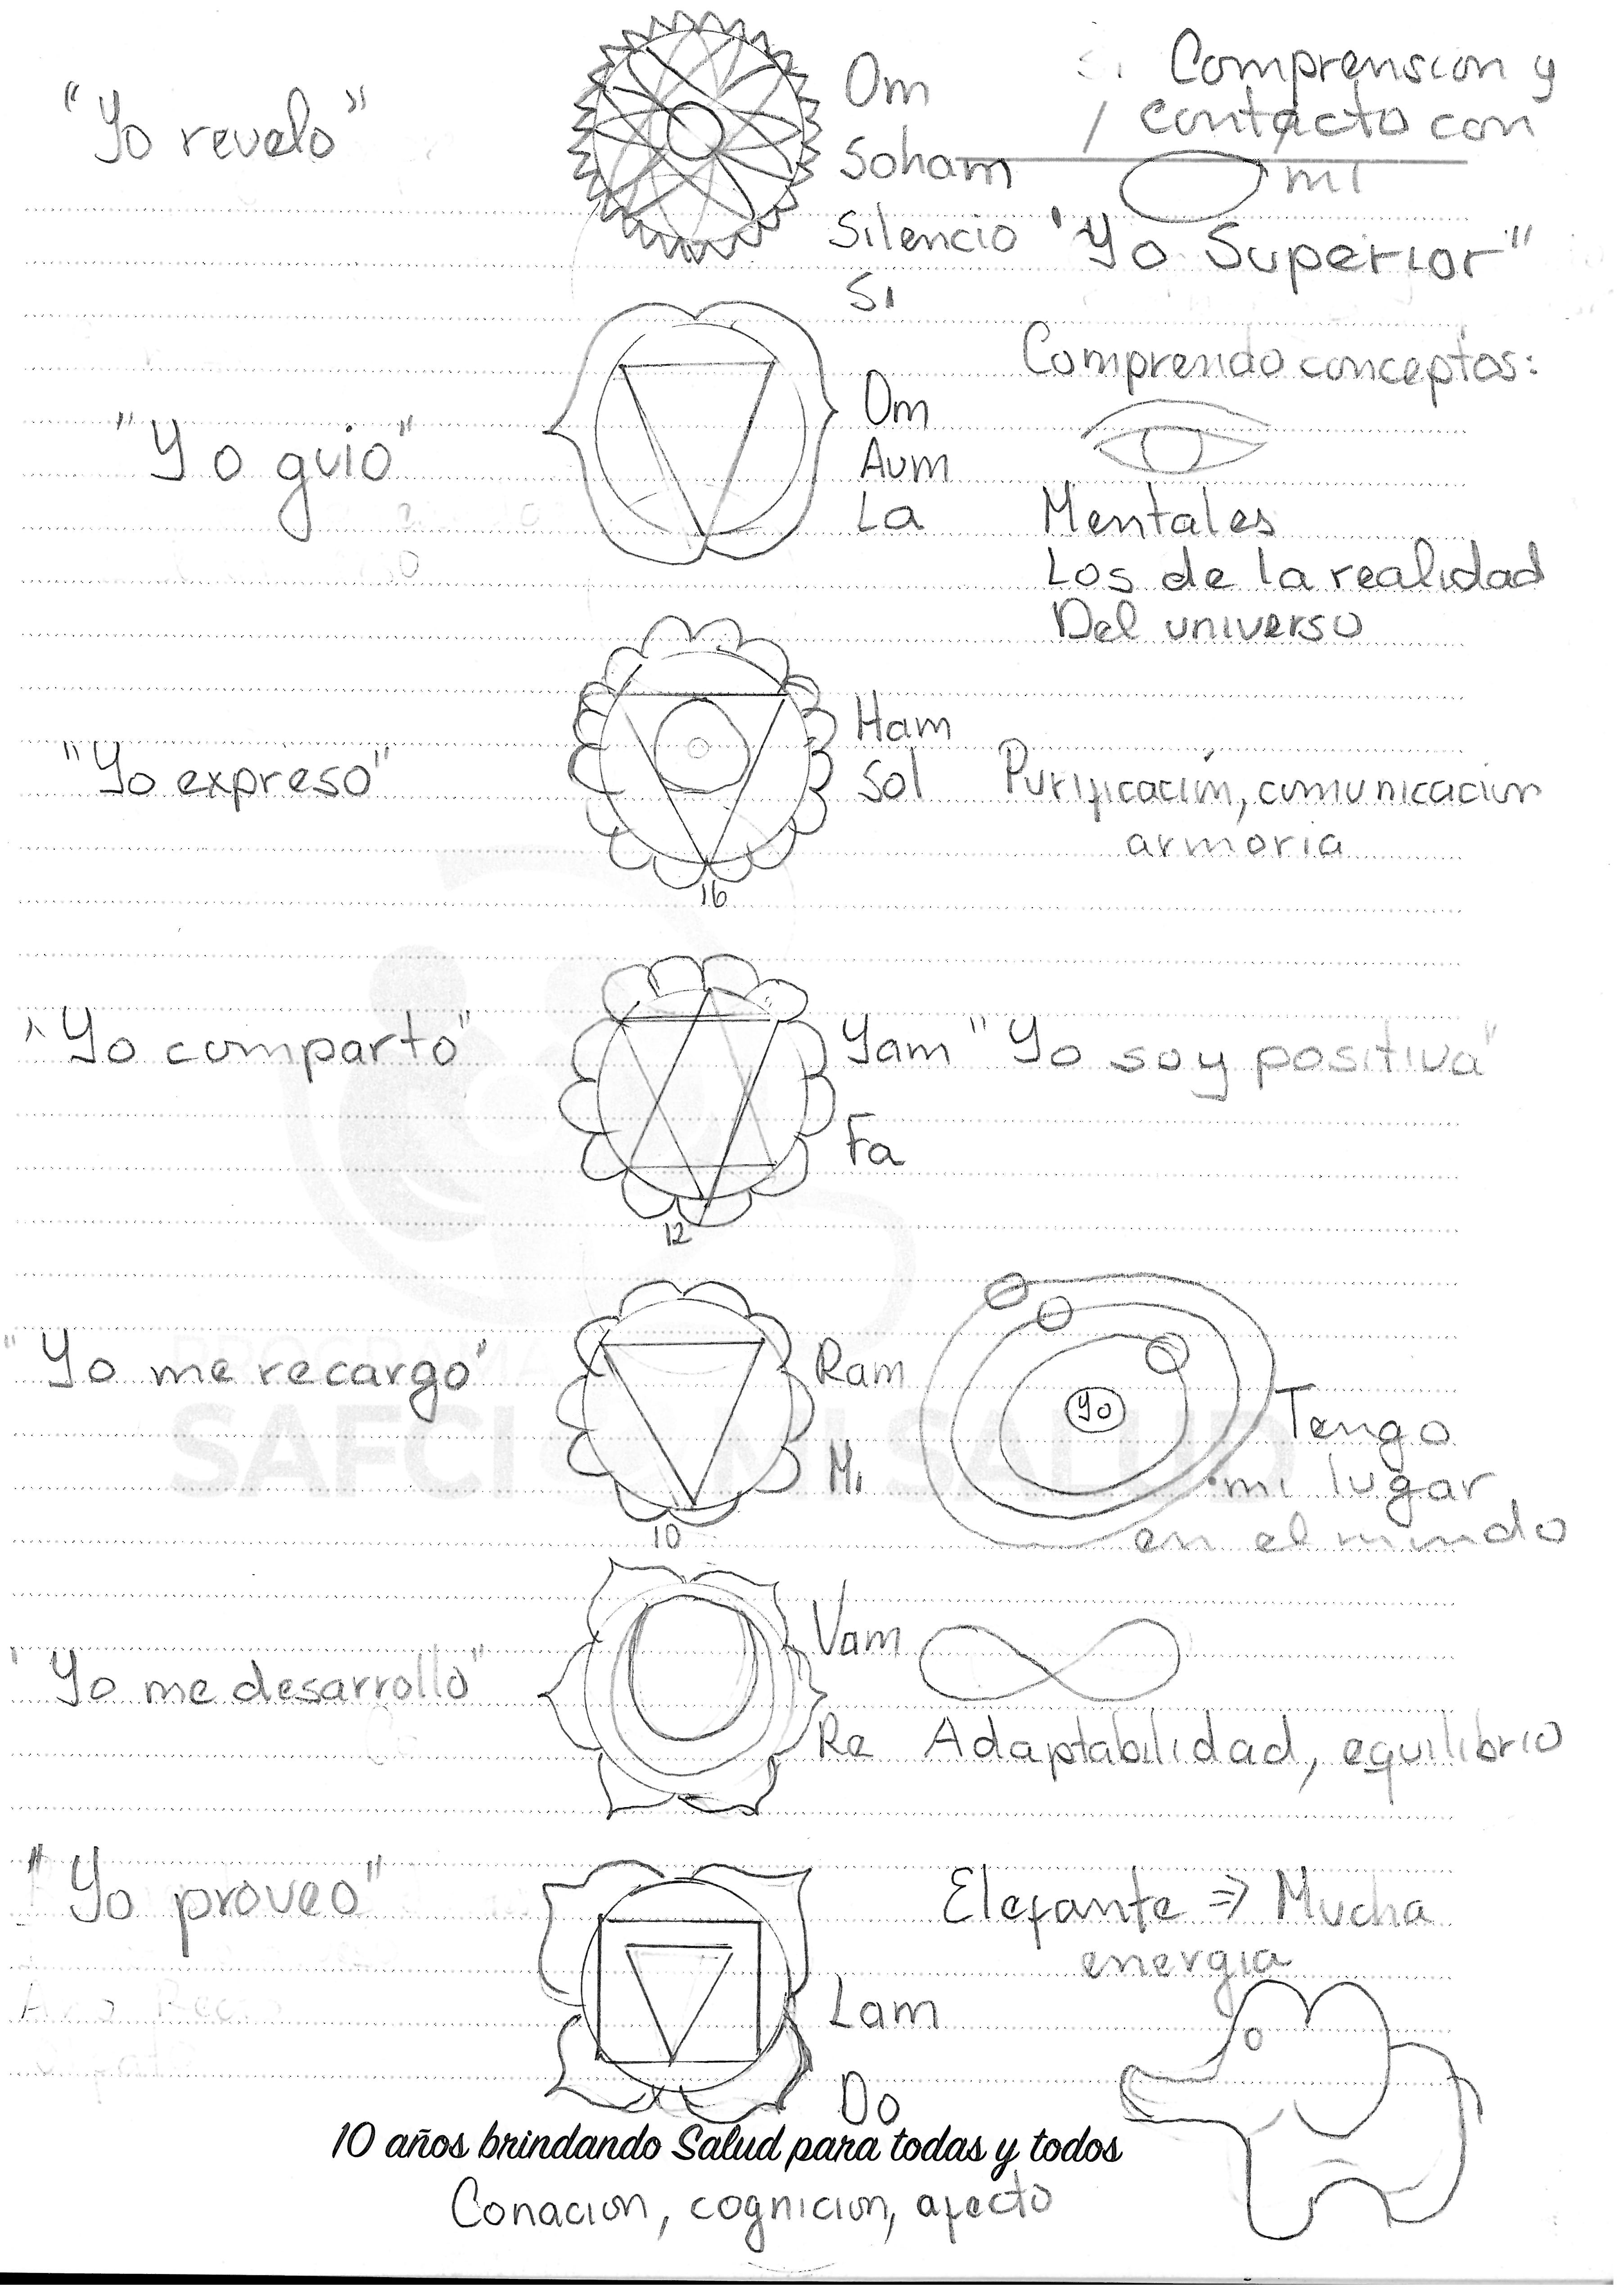 "Yo revelo"
Om
Soham
Silencio
Si
Comprension y
contacto con
mi
"Yo Superior"
"Yo guio"
Om
Aum
La
Comprendo conceptos:
Mentales
Los de la realidad
Del universo
"Yo expreso"
Ham
Sol
Purificación, comunicacion
armoria
16
"Yo comparto"
Yam "Yo soy positiva"
Fa
12
"Yo me recargo"
Ram
Mi
10
Yo
Tengo
mi lugar
en el mundo
"Yo me desarrollo"
Vam
Re Adaptabilidad, equilibrio
"Yo proveo"
Elefante => Mucha
energia
Lam
Do
SAFCI MI SALUD
10 años brindando Salud para todas y todos
Conacion, cognicion, afecto